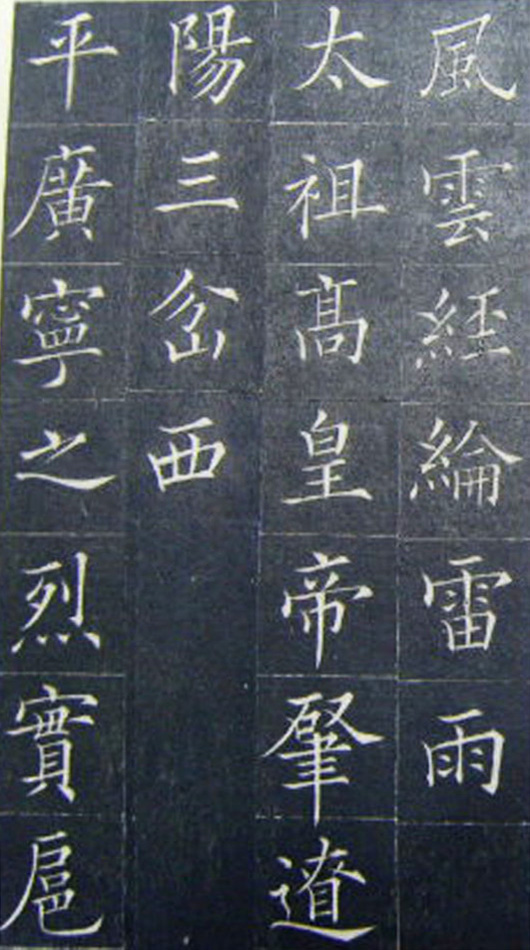 風雲經綸雷雨
太祖髙皇帝肇遼
陽三岔西
平廣寧之烈實扈